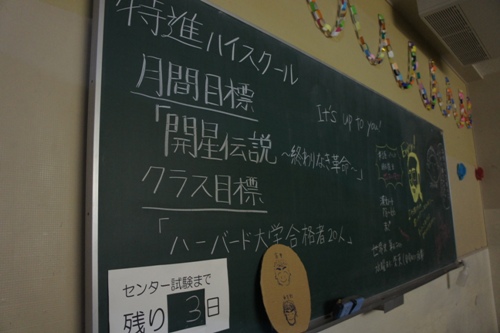 特進ハイスクール
月間目標
「開星伝説 ～終わりなき革命～」
クラス目標
「ハーバード大学合格者20人」
It's up to you!
センター試験まで
残り3日